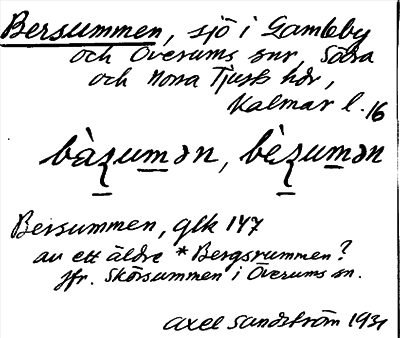 Bersummen, sjö i Gamleby
och Överums snr, Södra
och Norra Tjusts hdr,
Kalmar l. 16
bàʐumən, bèʐumən
Bersummen, glk 147
av ett äldre *Bergsrummen?
Jfr. Skörsummen i Överums sn.
Axel Sandström 1931